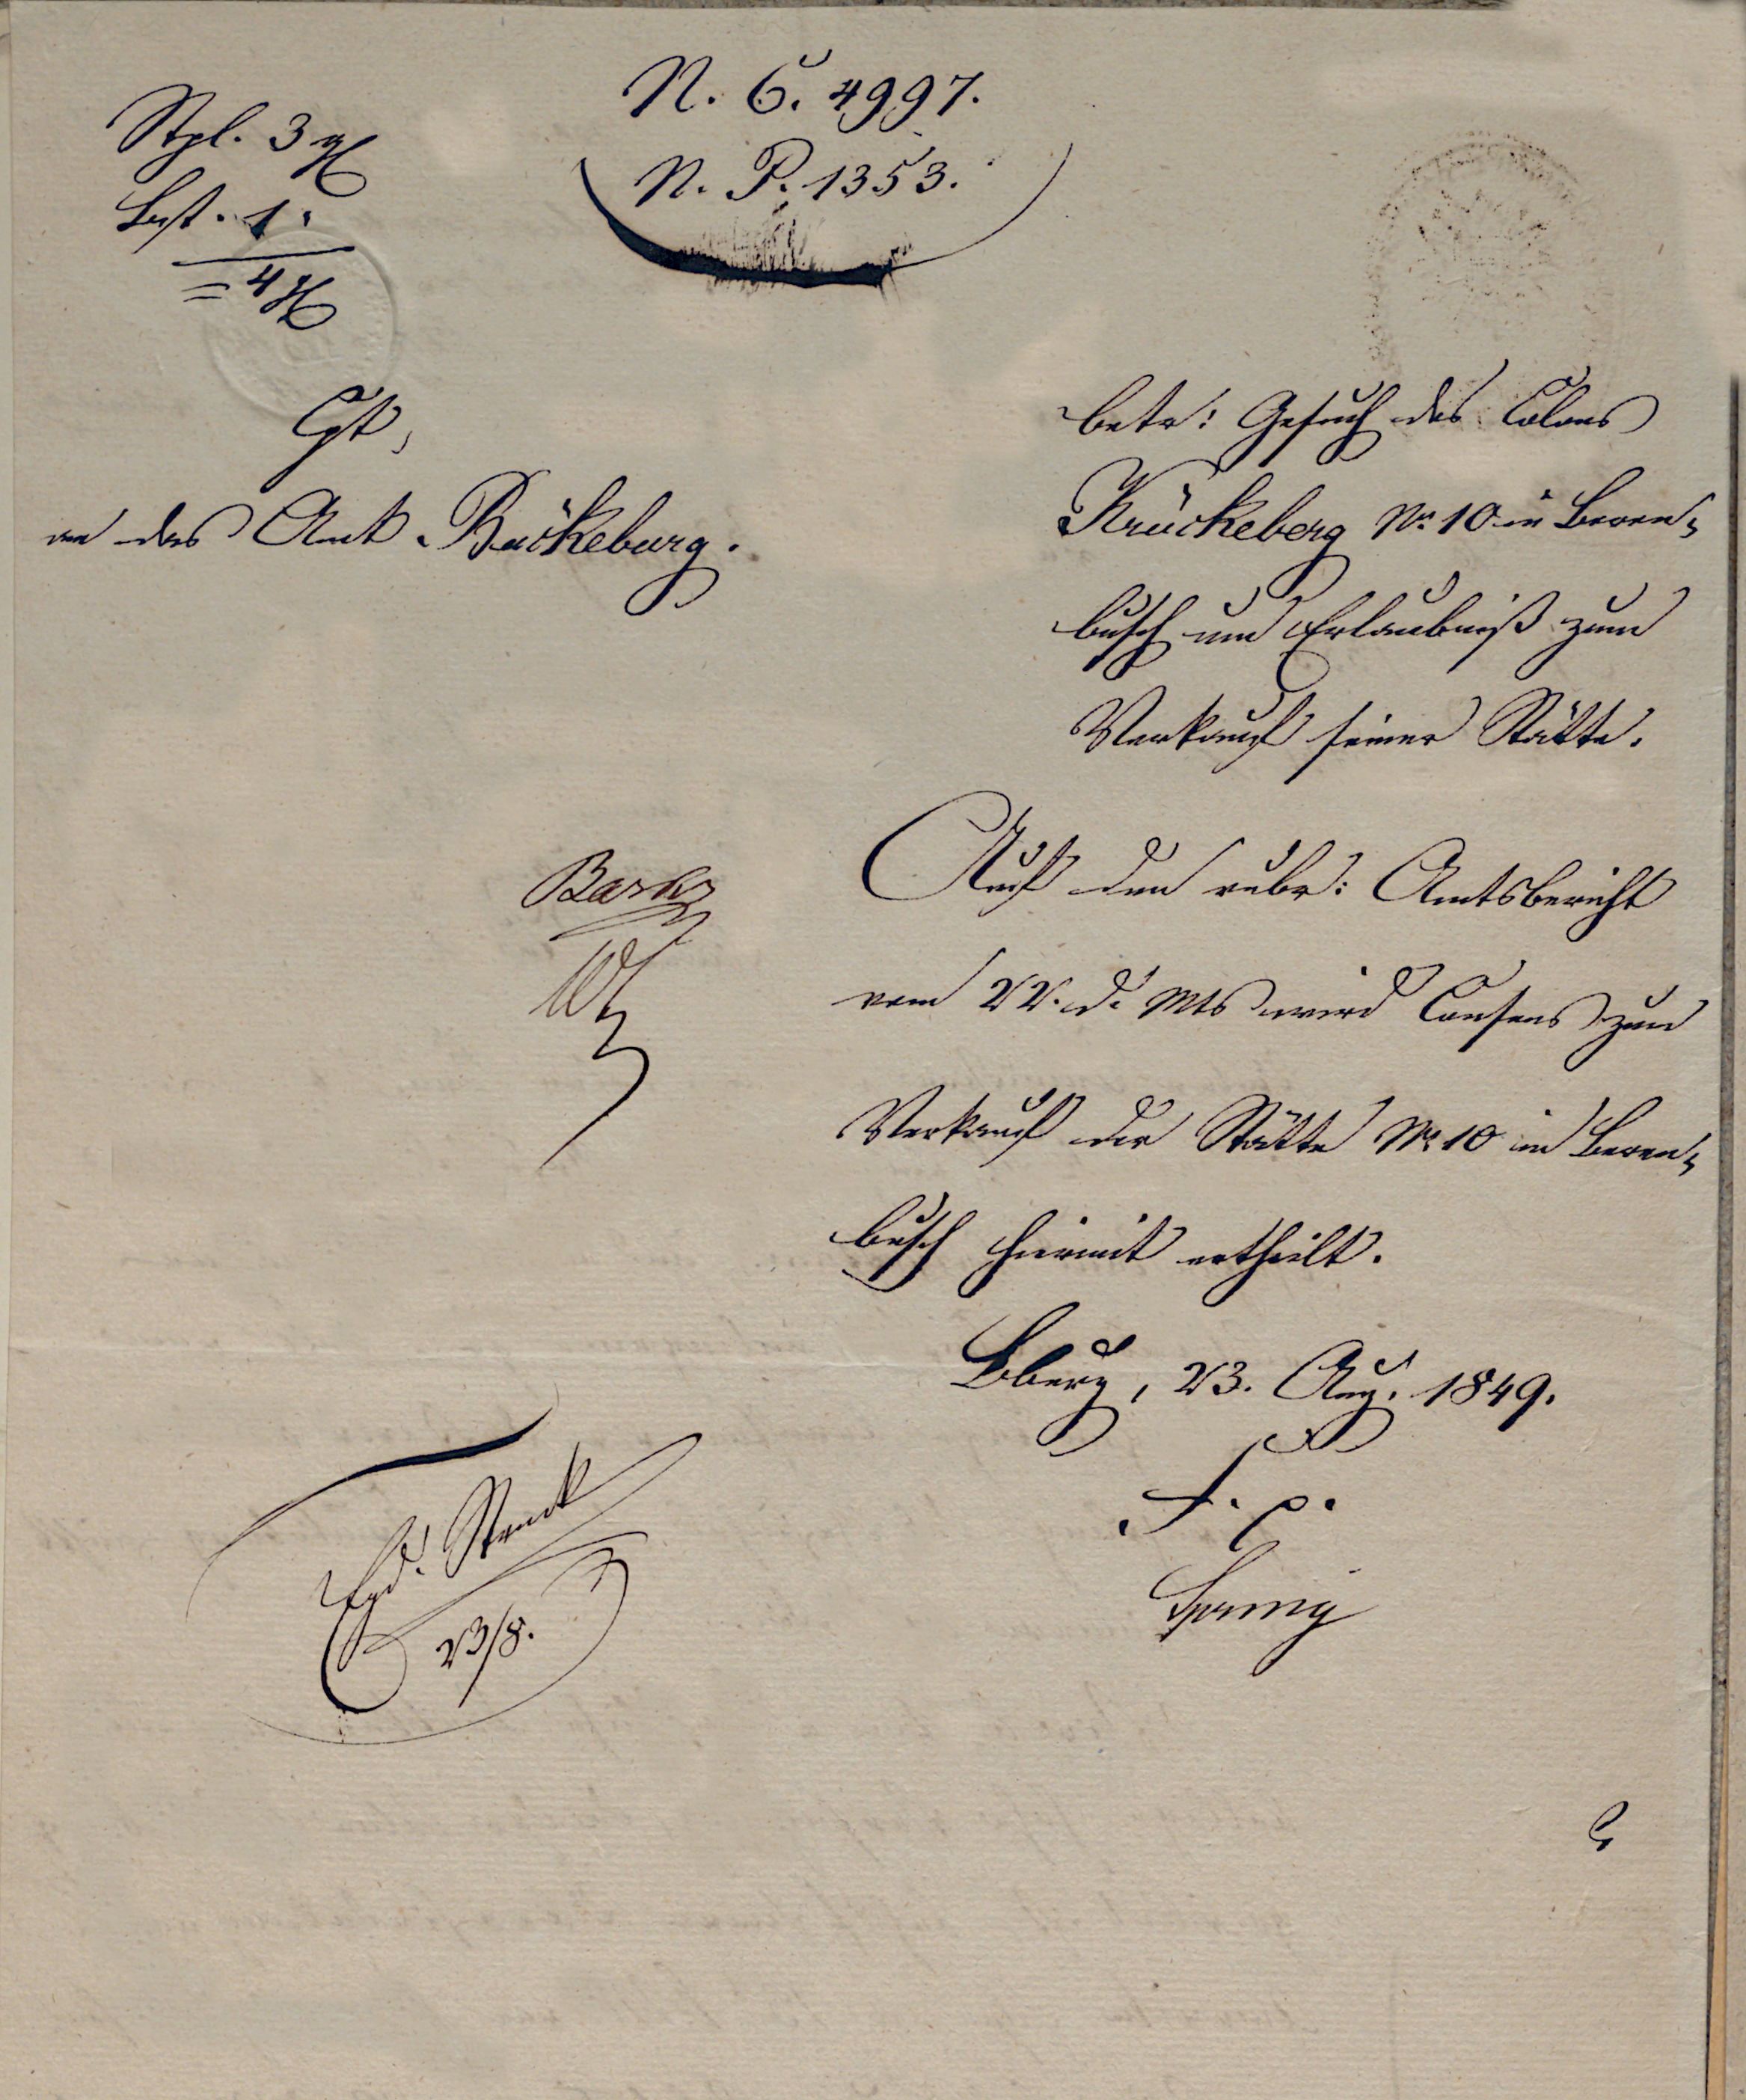 N. 6. 4997.
N. P. 1353.
Stpl. 3 ggl
Bst. 1.
= 4 ggl
Cpt,
an das Amt Bückeburg.
betr: Gesuch des Colons
Krückeberg No 10 in Beren-
busch um Erlaubniß zum
Verkauf seiner Stätte.
Auf den rubr: Amtsbericht
vom 22. d. Mts wird Consens zum
Verkauf der Stätte No 10 in Beren-
busch hiermit ertheilt.
Bburg, 23. Aug. 1849.
F. p.
Spring
Exped. Struck
23/8.